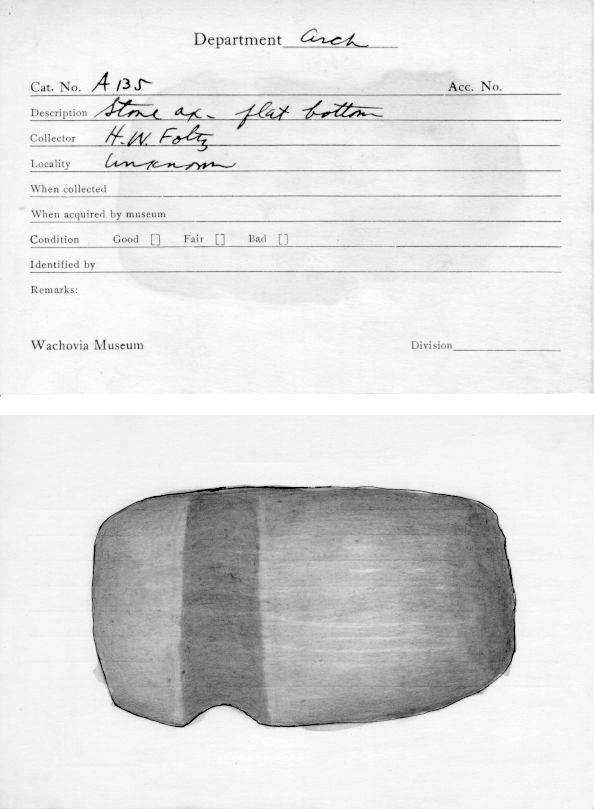 Department arch
Cat. No. A 135 Acc. No.
Description Stone ax - flat bottom
Collector H.W. Foltz
Locality unknown
When collected
When acquired by museum
Condition Good [] Fair [] Bad []
Identified by
Remarks:
Wachovia Museum Division